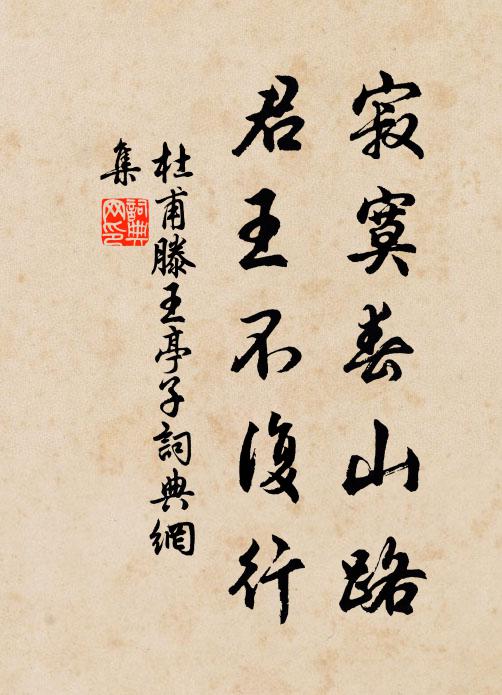 寂寞春山路
君王不復行
杜甫滕王亭子詞典網
集
詞典
网印